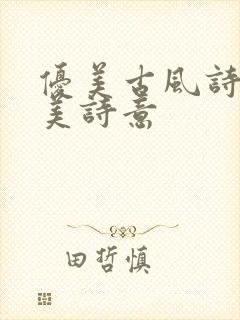 優美古風詩
美詩意
田哲慎